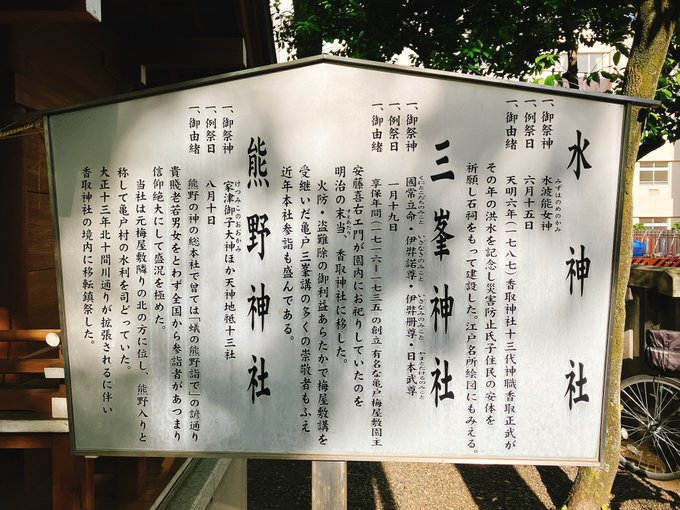 水神社
一、御祭神 水波能女神
みずはのめのかみ
一、例祭日 六月十五日
一、御由緒 天明六年(一七八七)香取神社十三代神職香取正武が
その年の洪水を記念し災害防止氏子住民の安体を
祈願し石祠をもって建設した。江戸名所絵図にもみえる。
三峯神社
一、御祭神 國常立命・伊弉諾尊・伊弉册尊・日本武尊
くにとこたちのみこと いざなぎのみこと いざなみのみこと やまとたけるのみこと
一、例祭日 一月十九日
一、御由緒 享保年間(一七一六―一七三五の創立 有名な亀戸梅屋敷園主
安藤喜右エ門が園内にお祀りしていたのを
明治の末当、香取神社に移した。
火防・盗難除の御利益あらたかで梅屋敷講を
受継いだ亀戸三峯講の多くの崇敬者もふえ
近年本社参詣も盛んである。
熊野神社
一、御祭神 家津御子大神ほか天神地祇十三社
けつみこのおおかみ
一、例祭日 八月十日
一、御由緒 熊野の神の総本社で曾ては「蟻の熊野詣で」の諺通り
貴賤老若男女をとわず全国から参詣者があつまり
信仰絶大にして盛況を極めた。
当社は元梅屋敷隣りの北の方に位し、熊野入りと
称して亀戸村の水利を司どっていた。
大正十三年北十間川通りが拡張されるに伴い
香取神社の境内に移転鎮祭した。